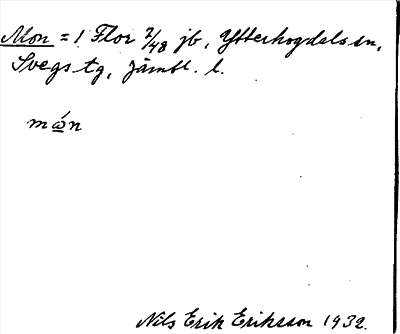 Mon = 1 Flor 2/48 jb, Ytterhogdals sn,
Svegs tg, Jämtl. l.
mώn
Nils Erik Eriksson 1932.